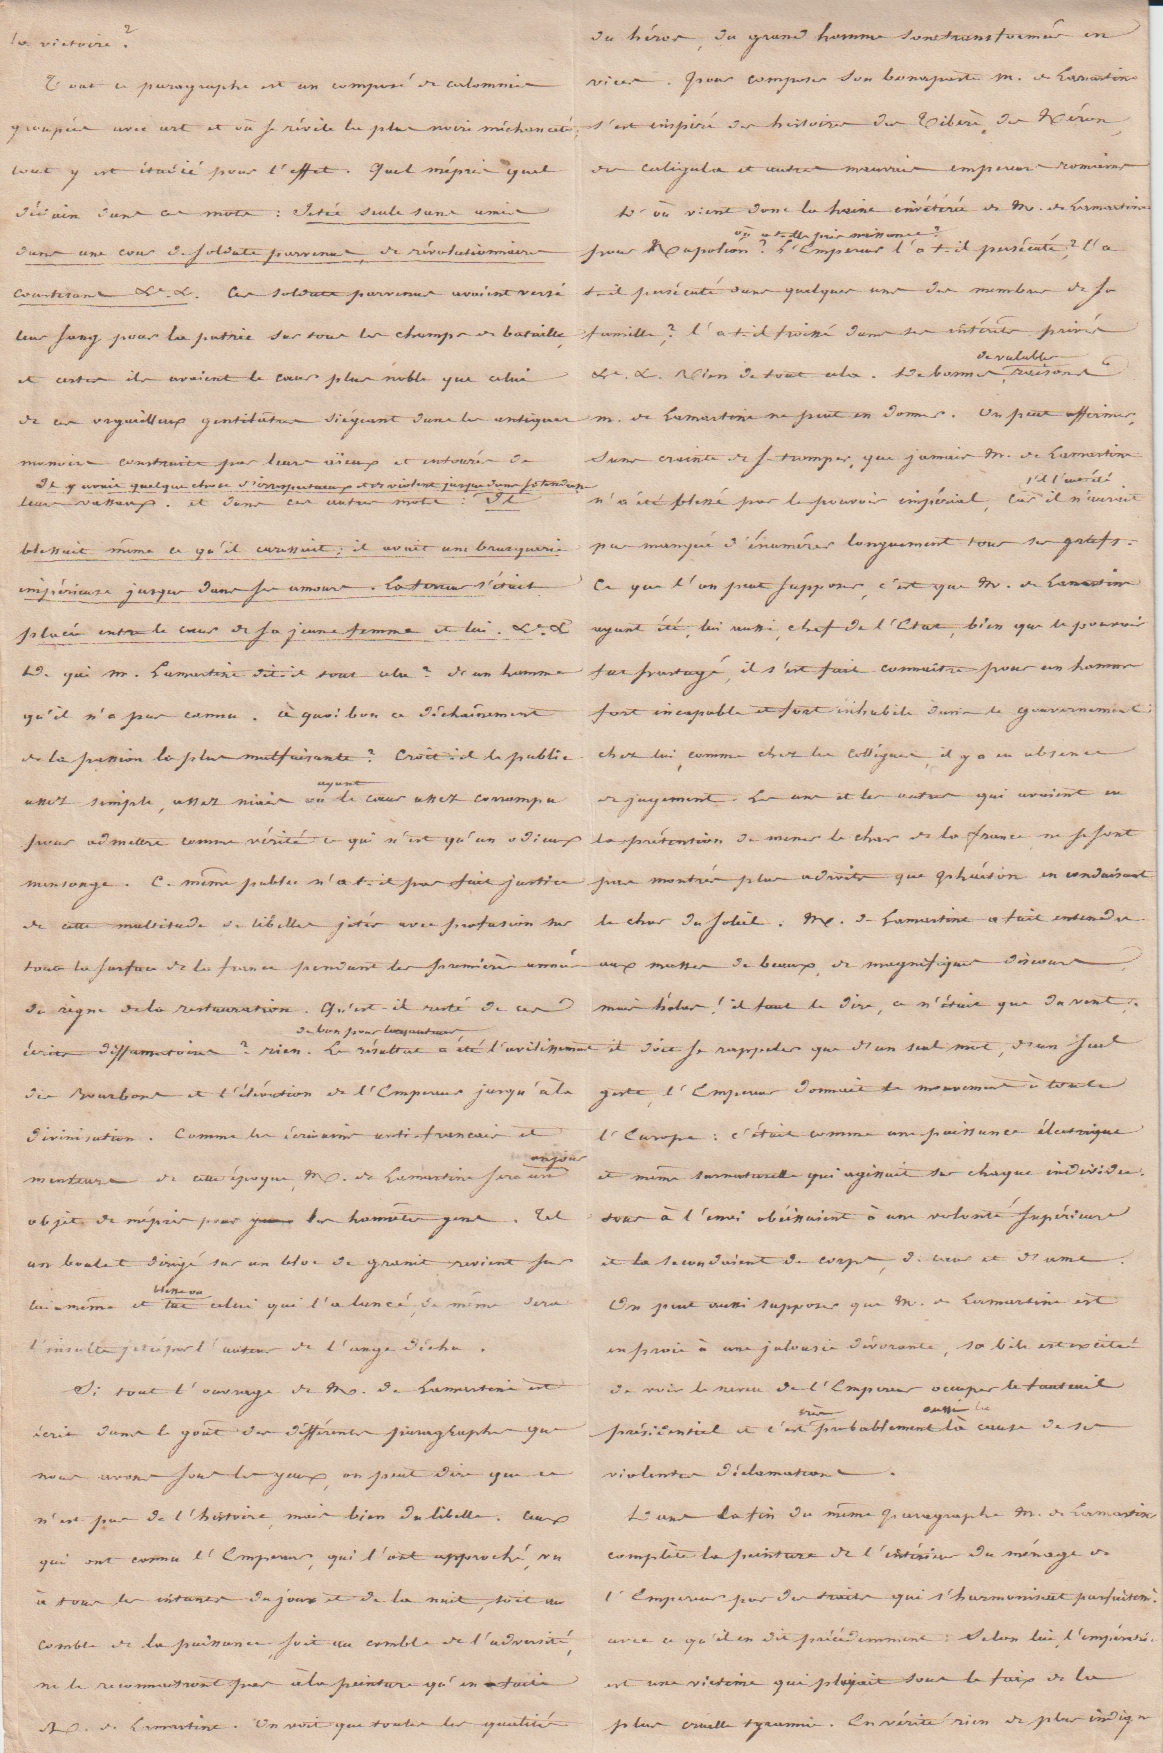 la victoire ?
Tout ce paragraphe est un composé de calomnies
groupées avec art et où se révèle la plus noire méchanceté ;
tout y est étudié pour l'effet. Quel mépris quel
dédain dans ces mots : Jetée seule sans amis
dans une cour de soldats parvenus, de révolutionnaires
courtisans &c. &. Ces soldats parvenus avaient versé
leur sang pour la patrie sur tous les champs de bataille,
et certes ils avaient le cœur plus noble que celui
de ces orgueilleux gentilatres siégeant dans les antiques
manoirs construits par leurs aïeux et entourés de
Il y avait quelque chose d'irrespectueux et de violent jusque dans sa tendresse
leurs vassaux. et dans ces autres mots : Il
blessait même ce qu'il caressait ; il avait une brusquerie
impérieuse jusque dans ses amours. La terreur s'était
placée entre le cœur de sa jeune femme et lui. &c. &
De qui M. Lamartine dit-il tout cela ? de un homme
qu'il n'a pas connu. à quoi bon ce déchaînement
de la passion la plus malfaisante ? Croit-il le public
ayant
assez simple, assez niais ou le cœur assez corrompu
pour admettre comme vérité ce qui n'est qu'un odieux
mensonge. Ce même public n'a-t-il pas fait justice
de cette multitude de libelles jetés avec profusion sur
toute la surface de la france pendant les premières années
du règne de la restauration. Qu'est-il resté de ces
de bon pour les auteurs
écrits diffamatoires ? rien. Le résultat a été l'avilissement
des Bourbons et l'élévation de l'Empereur jusqu'à la
divinisation. Comme les écrivains anti-français et
un jour
menteurs de cette époque, M. de Lamartine sera un
objet de mépris pour les honnêtes gens. Tel
un boulet dirigé sur un bloc de granit revient sur
blesse ou
lui-même et tue celui qui l'a lancé, de même sera
l'insulte jetée par l'auteur de l'ange déchu.
Si tout l'ouvrage de M. de Lamartine est
écrit dans le goût des différents paragraphes que
nous avons sous les yeux, on peut dire que ce
n'est pas de l'histoire, mais bien du libelle. Ceux
qui ont connu l'Empereur, qui l'ont approché, vu
à tous les instans du jour et de la nuit, soit au
comble de la puissance, soit au comble de l'adversité,
ne le reconnaîtront pas à la peinture qu'en a faite
M. de Lamartine. On voit que toutes les qualités
du héros, du grand homme sont transformées en
vices. pour composer son bonaparte M. de Lamartine
s'est inspiré des histoires des Tibère, des Néron,
des Caligula et autres mauvais empereurs romains
D'où vient donc la haine invétérée de M. de Lamartine
où a-t-elle pris naissance ?
pour Napoléon ? L'Empereur l'a-t-il persécuté ? l'a
t-il persécuté dans quelques uns des membres de sa
famille ? l'a-t-il froissé dans ses intérêts privés
de valables
&c. &. Rien de tout cela. De bonnes raisons
M. de Lamartine ne peut en donner. On peut affirmer,
sans crainte de se tromper, que jamais M. de Lamartine
s'il l'avait été
n'a été blessé par le pouvoir impérial, car il n'aurait
pas manqué d'énumérer longuement tous ses griefs.
Ce que l'on peut supposer, c'est que M. de Lamartine
ayant été, lui aussi, chef de l'Etat, bien que le pouvoir
fut partagé, il s'est fait connaître pour un homme
fort incapable et fort inhabile dans le gouvernement :
chez lui, comme chez les collègues, il y a eu absence
de jugement. Les uns et les autres qui avaient eu
la prétention de mener le char de la france ne se sont
pas montrés plus adroits que Phaéton en conduisant
le char du soleil. M. de Lamartine a fait entendre
aux masses de beaux, de magnifiques discours,
mais hélas ! il faut le dire, ce n'était que du vent ;
il doit se rappeler que d'un seul mot, d'un seul
geste, l'Empereur donnait le mouvement à toute
l'Europe : c'était comme une puissance électrique
et même surnaturelle qui agissait sur chaque individu.
tous à l'envi obéissaient à une volonté supérieure
et la secondaient de corps, de cœur et d'âme.
On peut aussi supposer que M. de Lamartine est
en proie à une jalousie dévorante, sa bile est excitée
de voir le neveu de l'Empereur occuper le fauteuil
très aussi la
présidentiel et c'est probablement là cause de ses
violentes déclamations.
Dans la fin du même paragraphe M. de Lamartine
complète la peinture de l'intérieur du ménage de
l'Empereur par des traits qui s'harmonisent parfaitemt.
avec ce qu'il en dit précédemment : Selon lui, l'impératri.
est une victime qui ployait sous le faix de la
plus cruelle tyrannie. En vérité rien de plus indigne